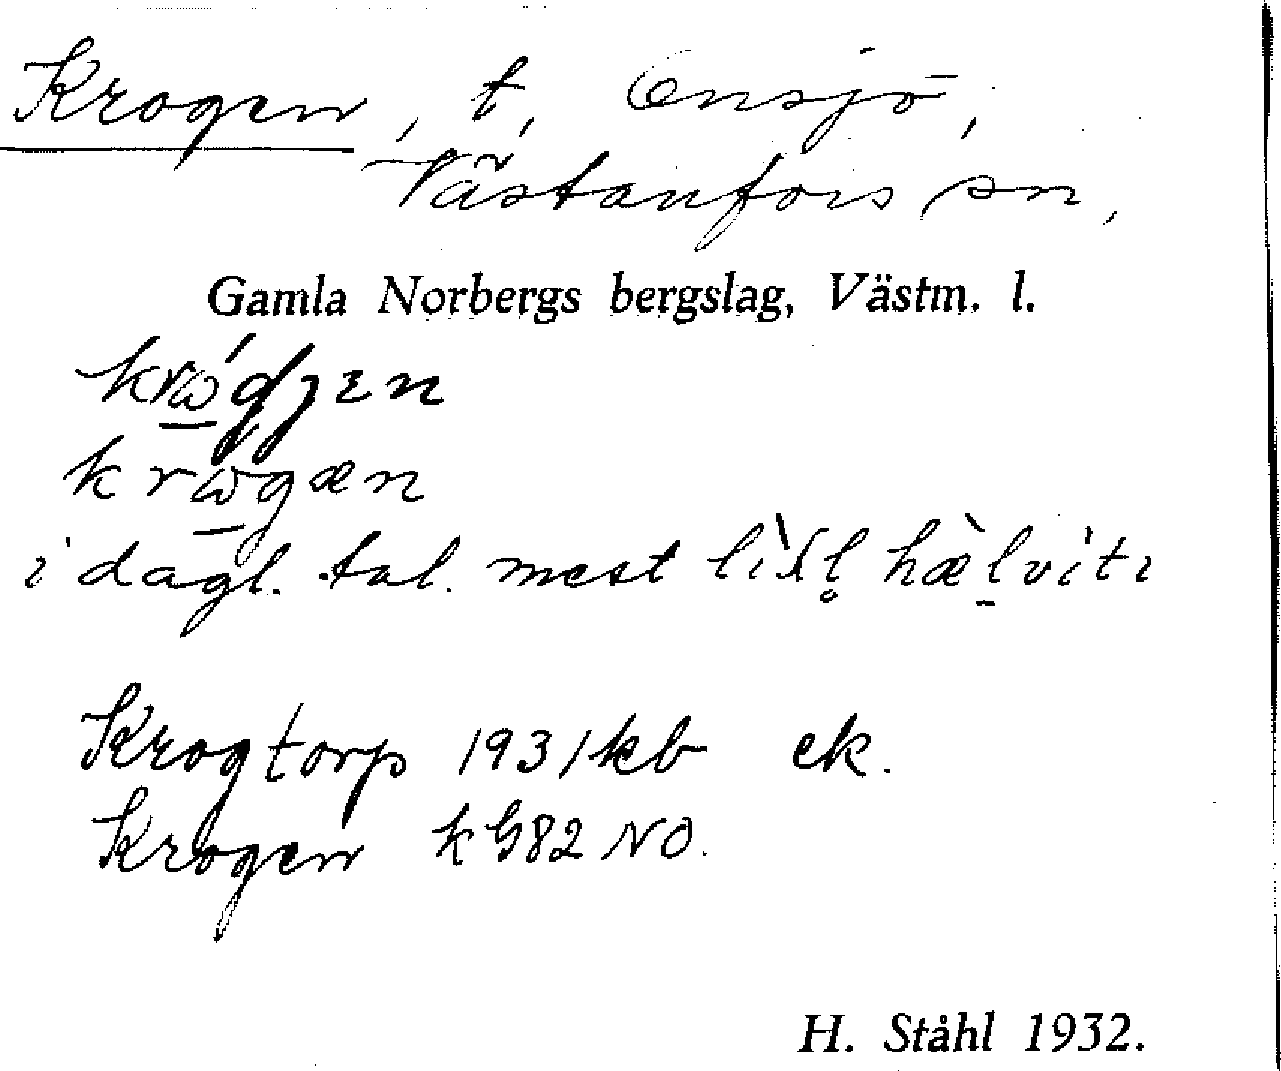 Krogen, t, Ensjö,
Västanfors sn,
Gamla Norbergs bergslag, Västm. l.
krægæn
i dagl. tal. mest hælviti
Krogtorp 1931 kb ek.
Krogen k G82 NO.
H. Ståhl 1932.